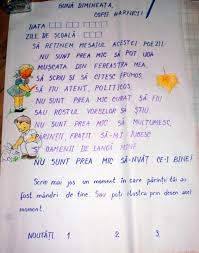 BUNĂ DIMINEAȚA,
COPII HARNICI!
DATA
ZILE DE ȘCOALĂ
SĂ REȚINEM MESAJUL ACESTEI POEZII.
NU SUNT PREA MIC SĂ POT UDA
MUȘCATA DIN FEREASTRA MEA,
SĂ SCRIU ȘI SĂ CITESC FRUMOS,
SĂ FIU ATENT, POLITICOS,
NU SUNT PREA MIC CURAT SĂ FIU
SAU ROSTUL VORBELOR SĂ ȘTIU,
NU SUNT PREA MIC SĂ MULȚUMESC,
PĂRINȚII, FRAȚII SĂ-MI IUBESC
OAMENII DE LÂNGĂ MINE
NU SUNT PREA MIC SĂ-NVĂȚ CE-I BINE!
Scrie mai jos un moment în care părinții tăi au
fost mândri de tine. Sau poți ilustra prin desen acel
moment.
NOUTĂȚI 1 2 3.